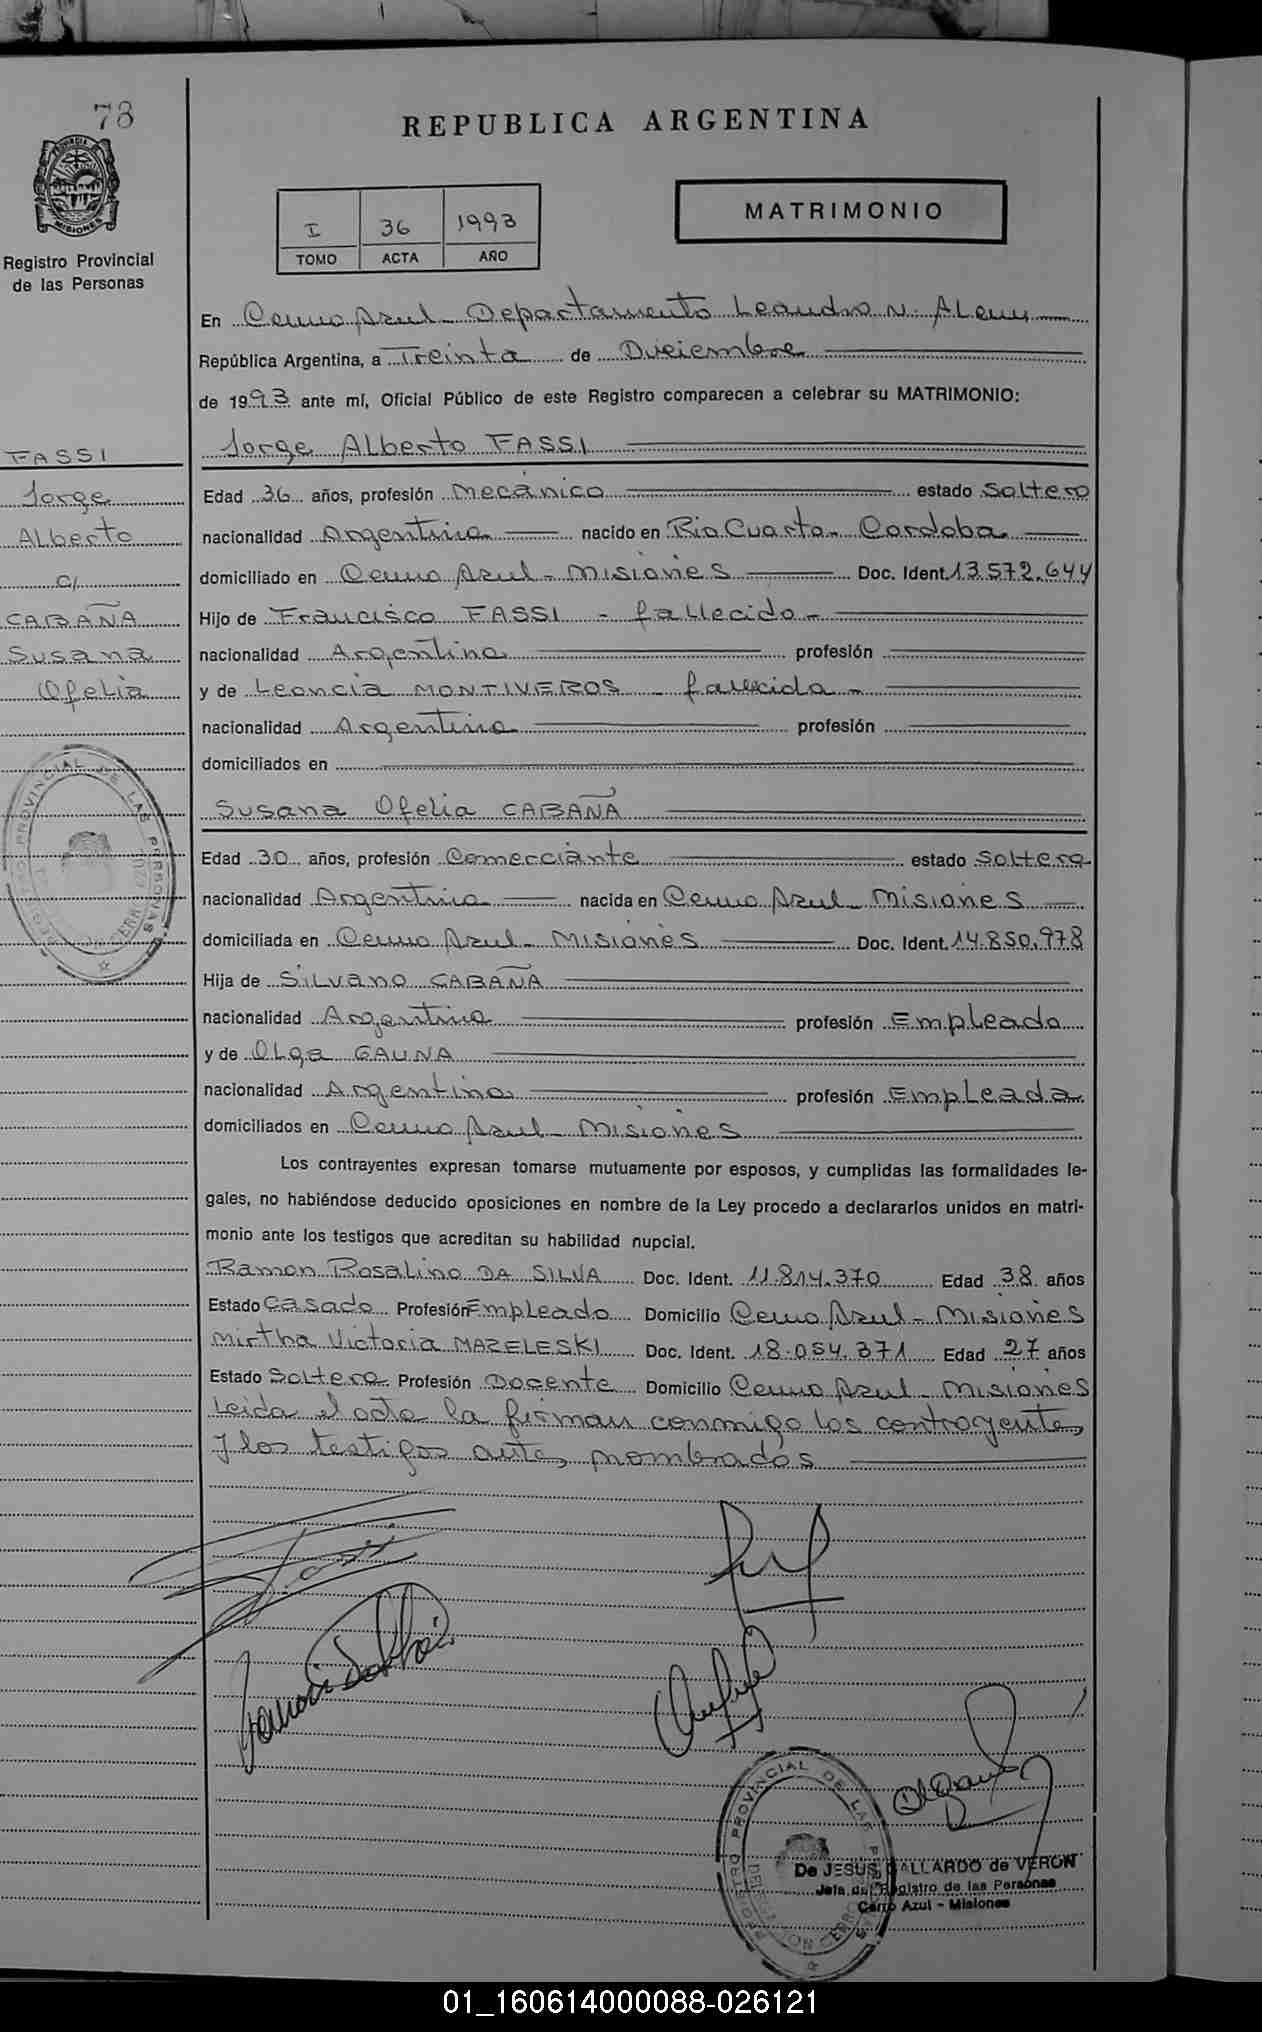 78
PROVINCIA DE MISIONES
Registro Provincial
de las Personas
FASSI
Jorge
Alberto
c/.
CABAÑA
Susana
Ofelia
REGISTRO PROVINCIAL DE LAS PERSONAS
REPUBLICA ARGENTINA
I 36 1993
TOMO ACTA AÑO
MATRIMONIO
En Cerro Azul - Departamento Leandro N. Alem
República Argentina, a Treinta de Diciembre
de 1993 ante mí, Oficial Público de este Registro comparecen a celebrar su MATRIMONIO:
Jorge Alberto FASSI
Edad 36 años, profesión Mecánico estado Soltero
nacionalidad Argentina nacido en Rio Cuarto - Cordoba
domiciliado en Cerro Azul - Misiones Doc. Ident. 13.572.644
Hijo de Francisco FASSI - fallecido -
nacionalidad Argentina profesión
y de Leoncia MONTIVEROS - fallecida -
nacionalidad Argentina profesión
domiciliados en
Susana Ofelia CABAÑA
Edad 30 años, profesión Comerciante estado Soltera
nacionalidad Argentina nacida en Cerro Azul - Misiones
domiciliada en Cerro Azul - Misiones Doc. Ident. 14.850.978
Hija de Silvano CABAÑA
nacionalidad Argentina profesión Empleado
y de Olga GAUNA
nacionalidad Argentina profesión Empleada
domiciliados en Cerro Azul - Misiones
Los contrayentes expresan tomarse mutuamente por esposos, y cumplidas las formalidades le-
gales, no habiéndose deducido oposiciones en nombre de la Ley procedo a declararlos unidos en matri-
monio ante los testigos que acreditan su habilidad nupcial.
Ramon Rosalino DA SILVA Doc. Ident. 11.814.370 Edad 38 años
Estado Casado Profesión Empleado Domicilio Cerro Azul - Misiones
Mirtha Victoria MAZELESKI Doc. Ident. 18.054.371 Edad 27 años
Estado Soltera Profesión Docente Domicilio Cerro Azul - Misiones
Leida el acta la firman conmigo los contrayentes
y los testigos antes nombrados
REGISTRO PROVINCIAL DE LAS PERSONAS
De JESUS GALLARDO de VERON
Jefa del Registro de las Personas
Cerro Azul - Misiones
01_160614000088-026121